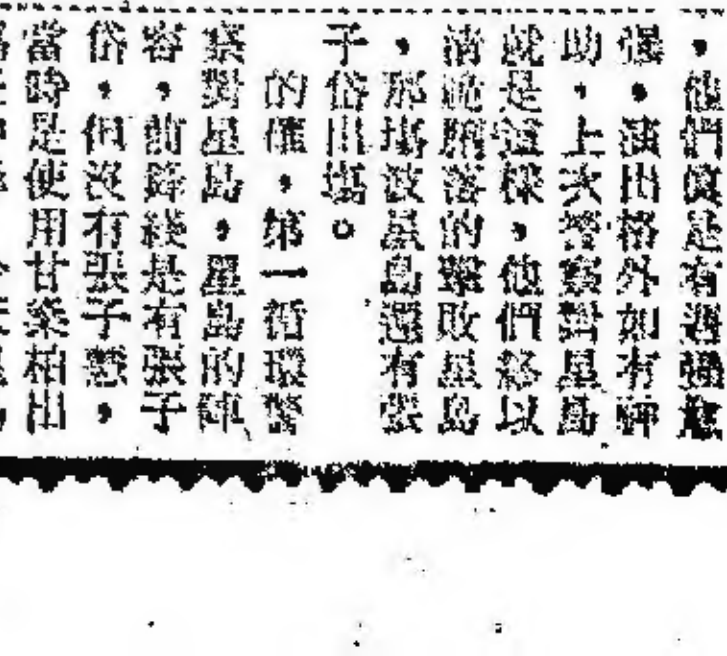 ，他們儼是有遇強愈
強，演出格外如有神
助，上次警察對星島
就是這樣，他們終以
清脆俐落的擊敗星島
，那塲波星島還有張
子岱出塲。
的確，第一循環警
察對星島，星島的陣
容，前鋒綫是有張子
岱，但沒有張子慧，
當時是使用甘燊柏出